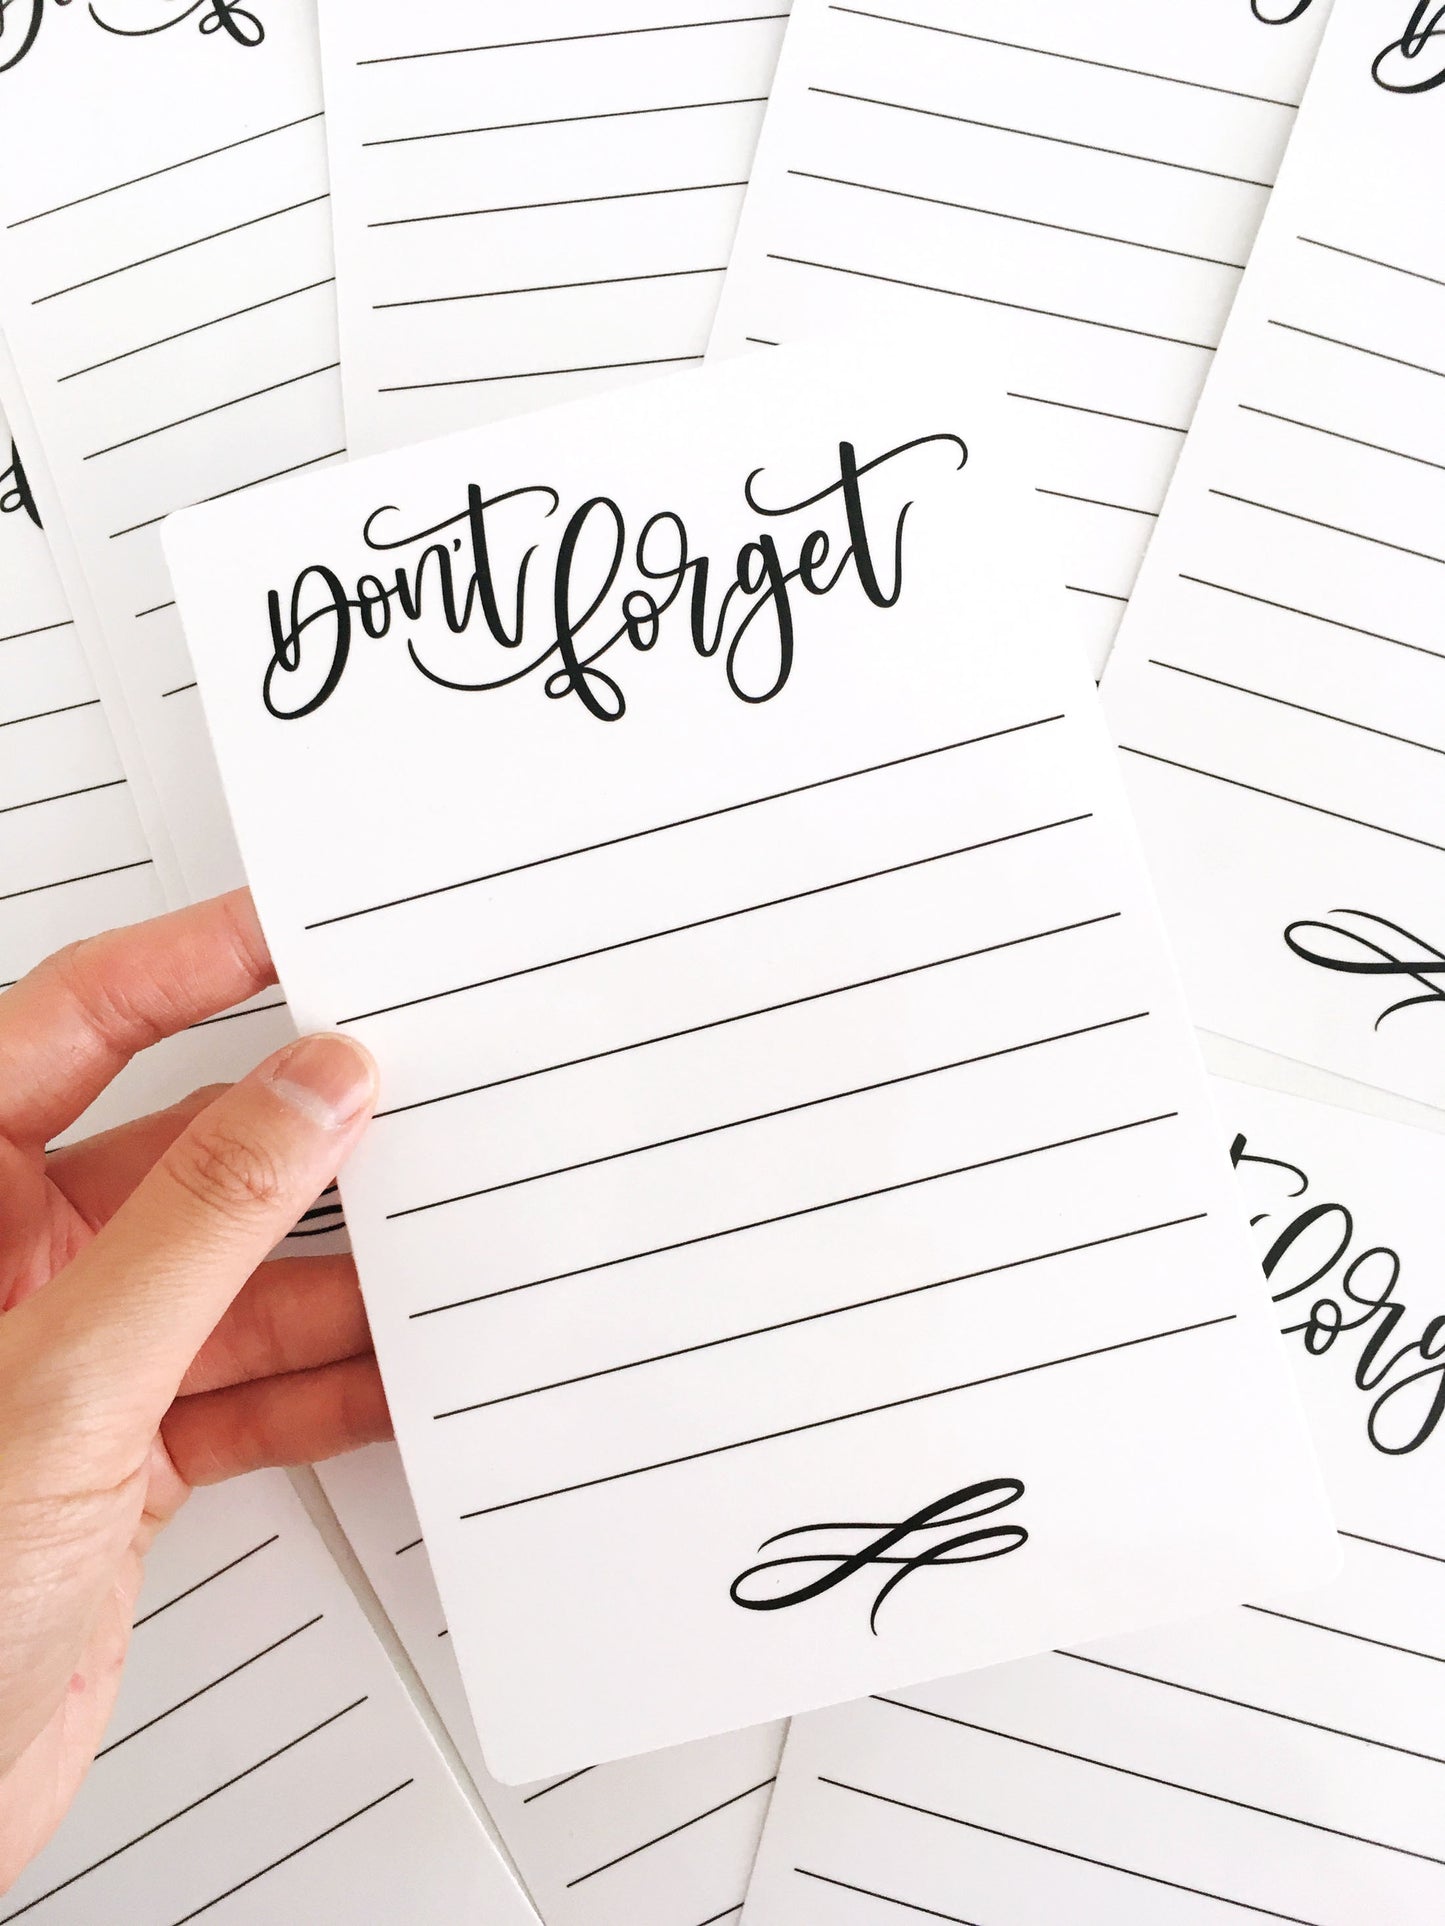 Don't forget